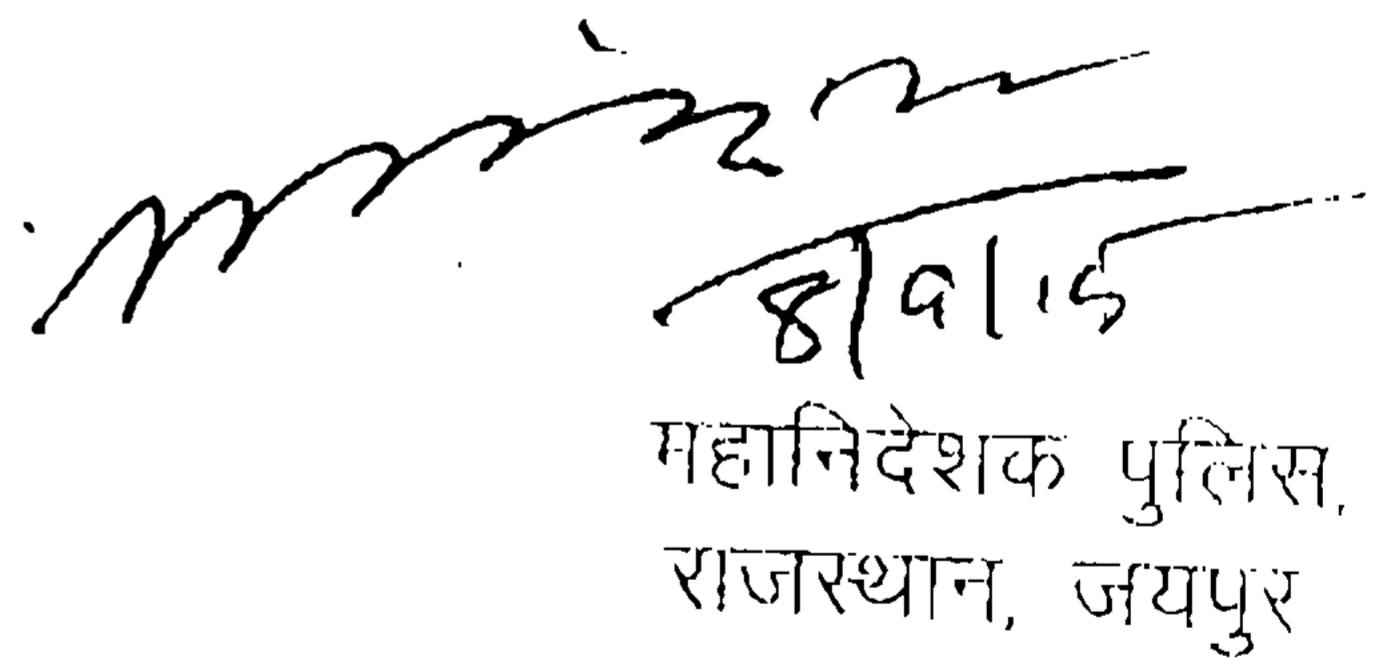 8/9/15
महानिदेशक पुलिस,
राजस्थान, जयपुर